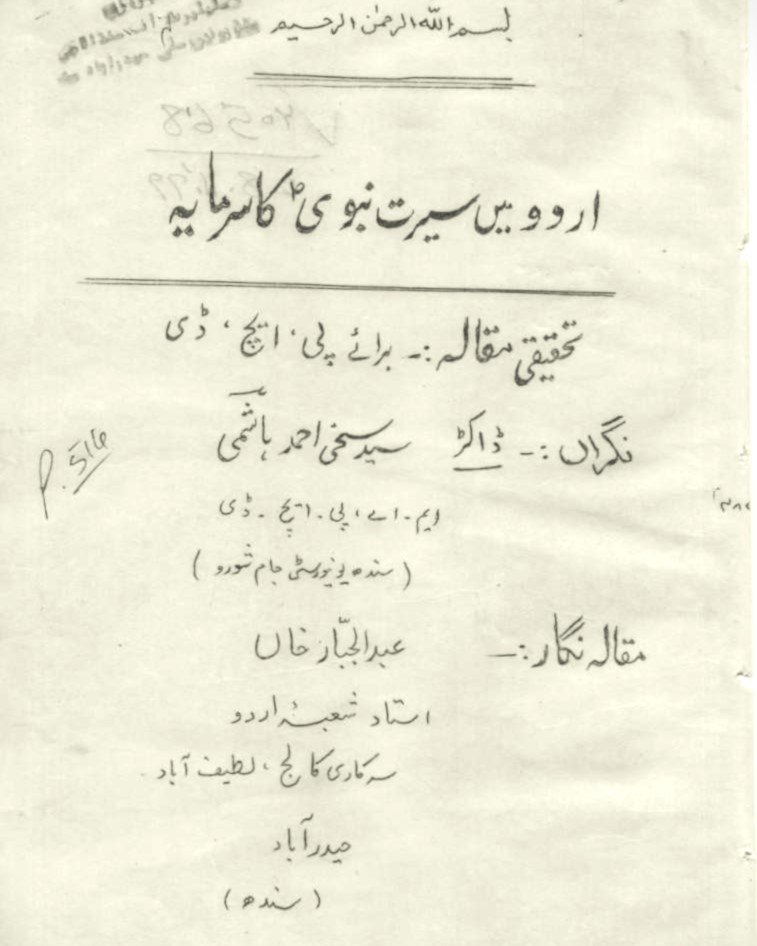 بسم اللہ الرحمٰن الرحیم
اردو میں سیرت نبویؐ کا سرمایہ
تحقیقی مقالہ :۔ برائے پی، ایچ، ڈی
نگراں :۔ ڈاکٹر سید سخی احمد ہاشمی
ایم۔اے، پی۔ایچ۔ڈی
(سندھ یونیورسٹی جام شورو)
P. 516
مقالہ نگار :۔ عبدالجبّار خاں
استاد شعبۂ اردو
سرکاری کالج، لطیف آباد۔
حیدرآباد
(سندھ)